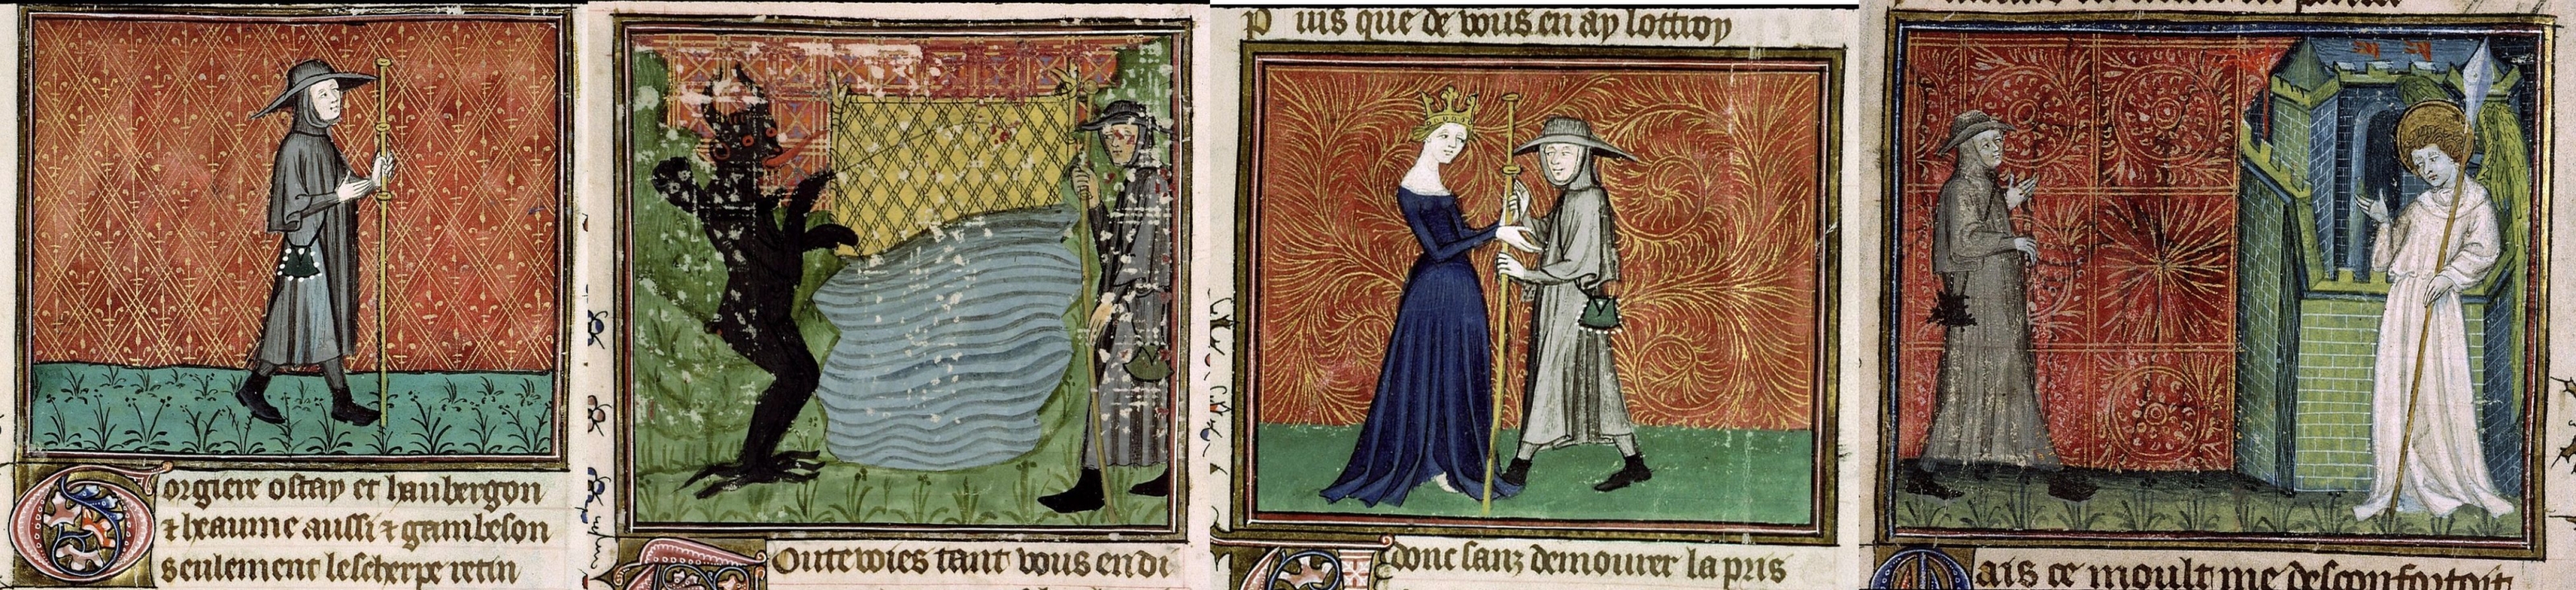 Gorgiere ostay et haubergon
⁊ heaume aussi ⁊ gambeson
seulement lescherpe retin
Toutevoies tant vous en di
Puis que de vous en ay lottroy
donc sanz demourer la pris
Mais ce moult me desconfortoit